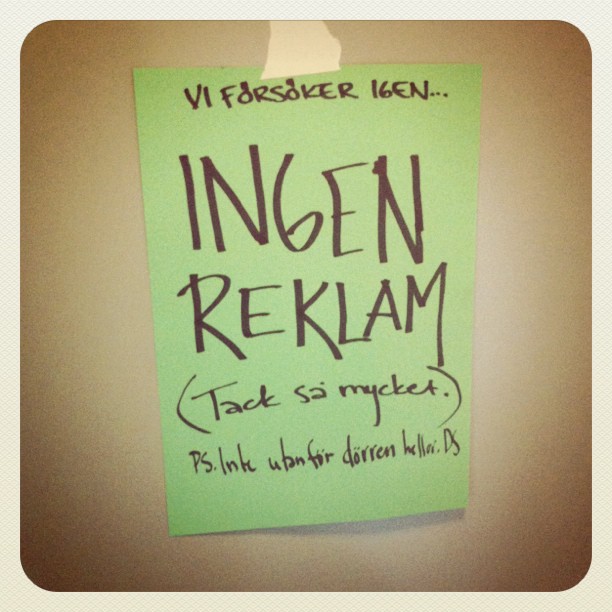 VI FÖRSÖKER IGEN...
INGEN
REKLAM
(Tack så mycket.)
PS. Inte utanför dörren heller. DS